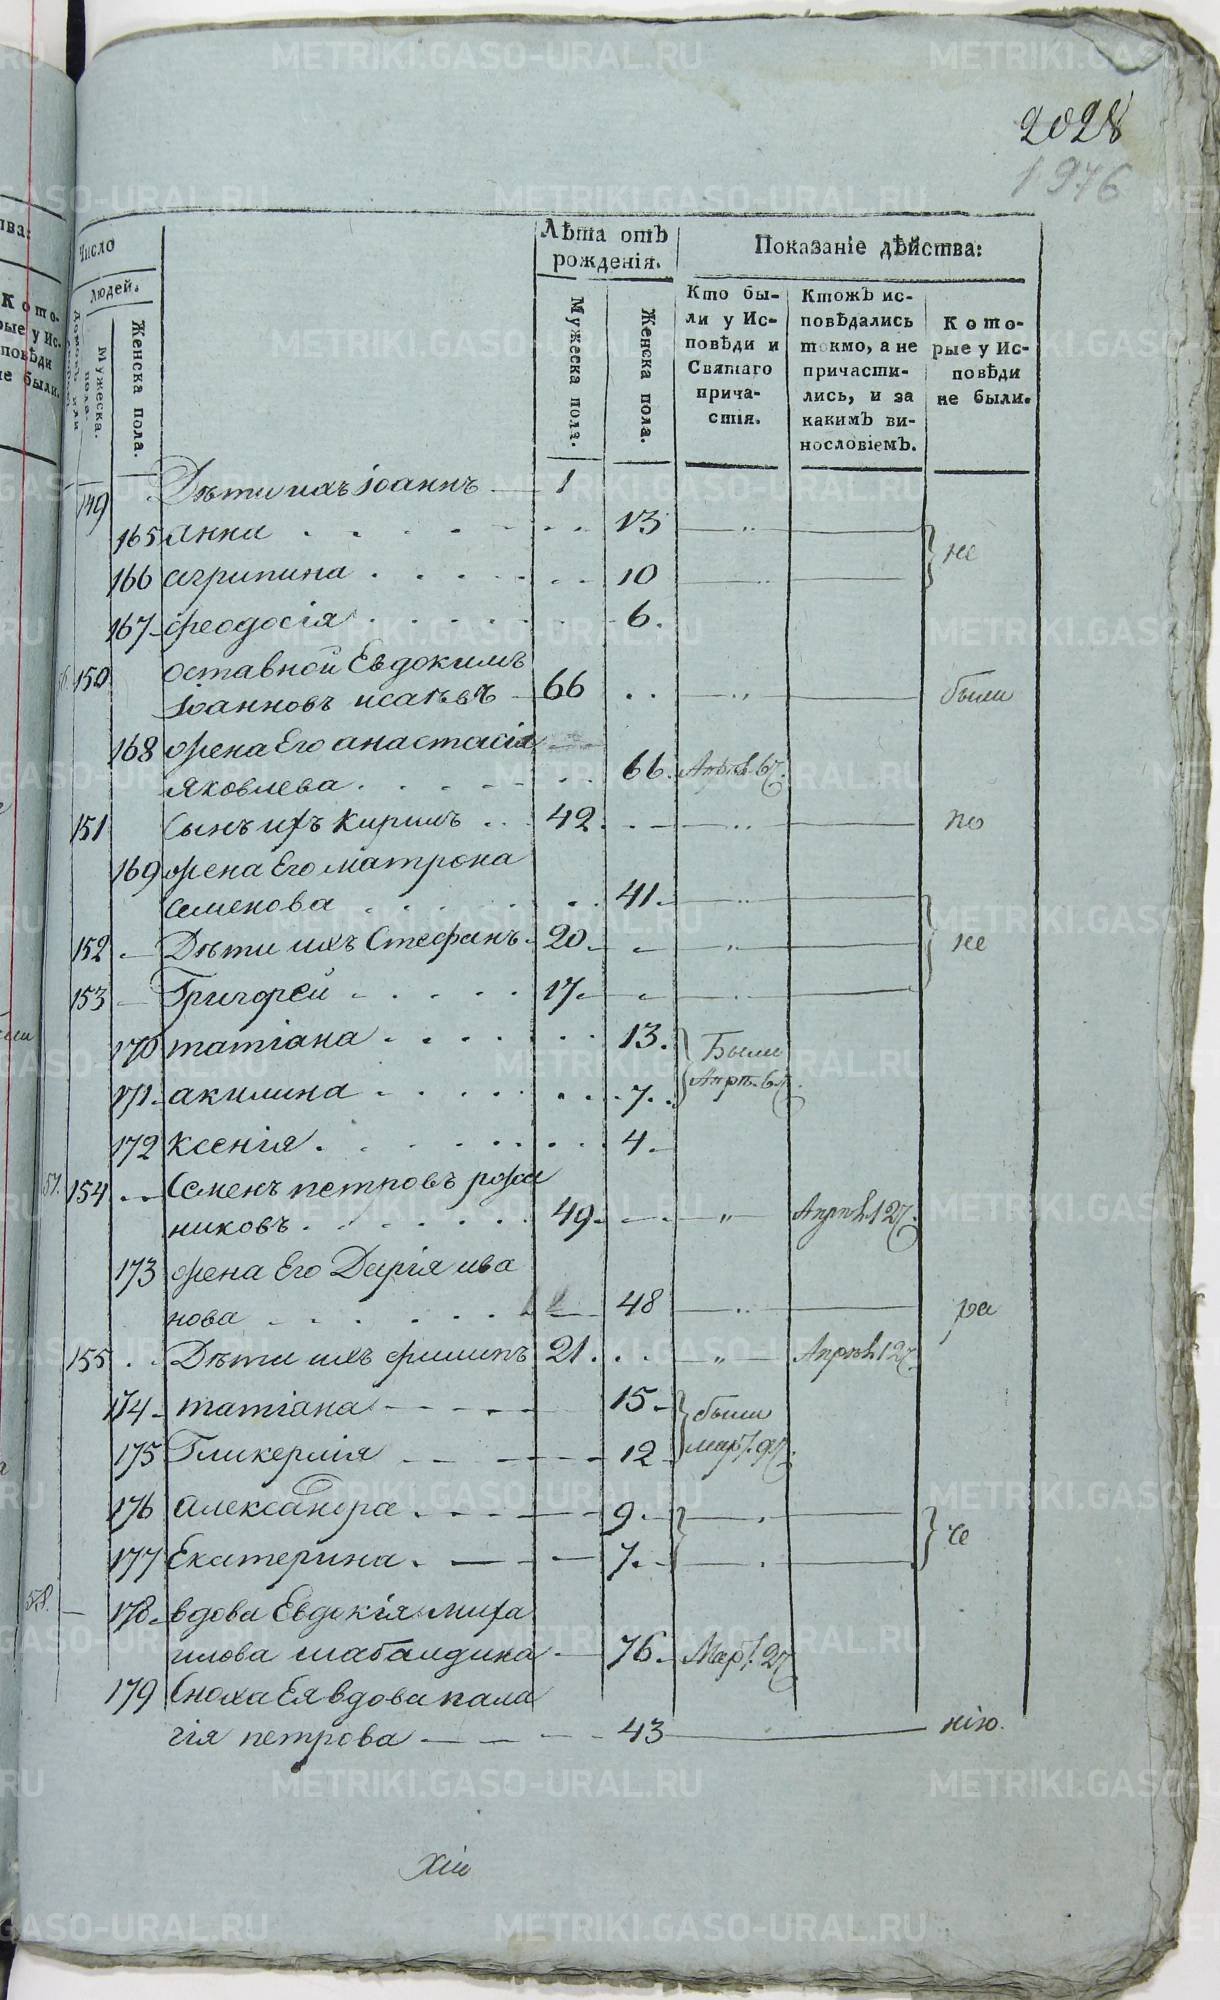 2028
1976
Число
людей.
Лѣта отъ
рожденія.
Показаніе дѣйства:
Мужеска
пола.
Женска пола.
Мужеска пола.
Женска пола.
Кто бы-
ли у Ис-
повѣди и
Святаго
прича-
стія.
Ктожъ ис-
повѣдались
токмо, а не
причасти-
лись, и за
какимъ ви-
нословіемъ.
Кото-
рые у Ис-
повѣди
не были.
149 Дѣти ихъ Іоаннъ 1
165 Анна 13 не
166 агрипина 10
167 феодосія 6.
150 оставной Евдокимъ
Іоанновъ исаевъ 66 были
168 жена Его анастасія
Яковлева 66. Апрѣл. 6
151 Сынъ ихъ Кирилъ 42. по
169 жена Его матрона
Семенова 41.
152 Дѣти ихъ Стефанъ 20. не
153 Григорей 17.
170 татіана 13. Были
171. акилина 7. Апрѣ. 6
172 ксенія 4.
57. 154 Семенъ петровъ рожи
никовъ 49. Апрѣл. 12
173 жена Его Дарія ива
нова 48 ра
155 Дѣти ихъ филипъ 21. Апрѣл. 12
174 татіана 15 были
175 Гликерія 12 мар. 9
176 Александра 9. че
177 Екатерина 7.
58. 178 вдова Евдокія миха
илова шабалдина 76. Мар. 2
179 Сноха Ея вдова пала
гія петрова 43 нію.
METRIKI.GASO-URAL.RU